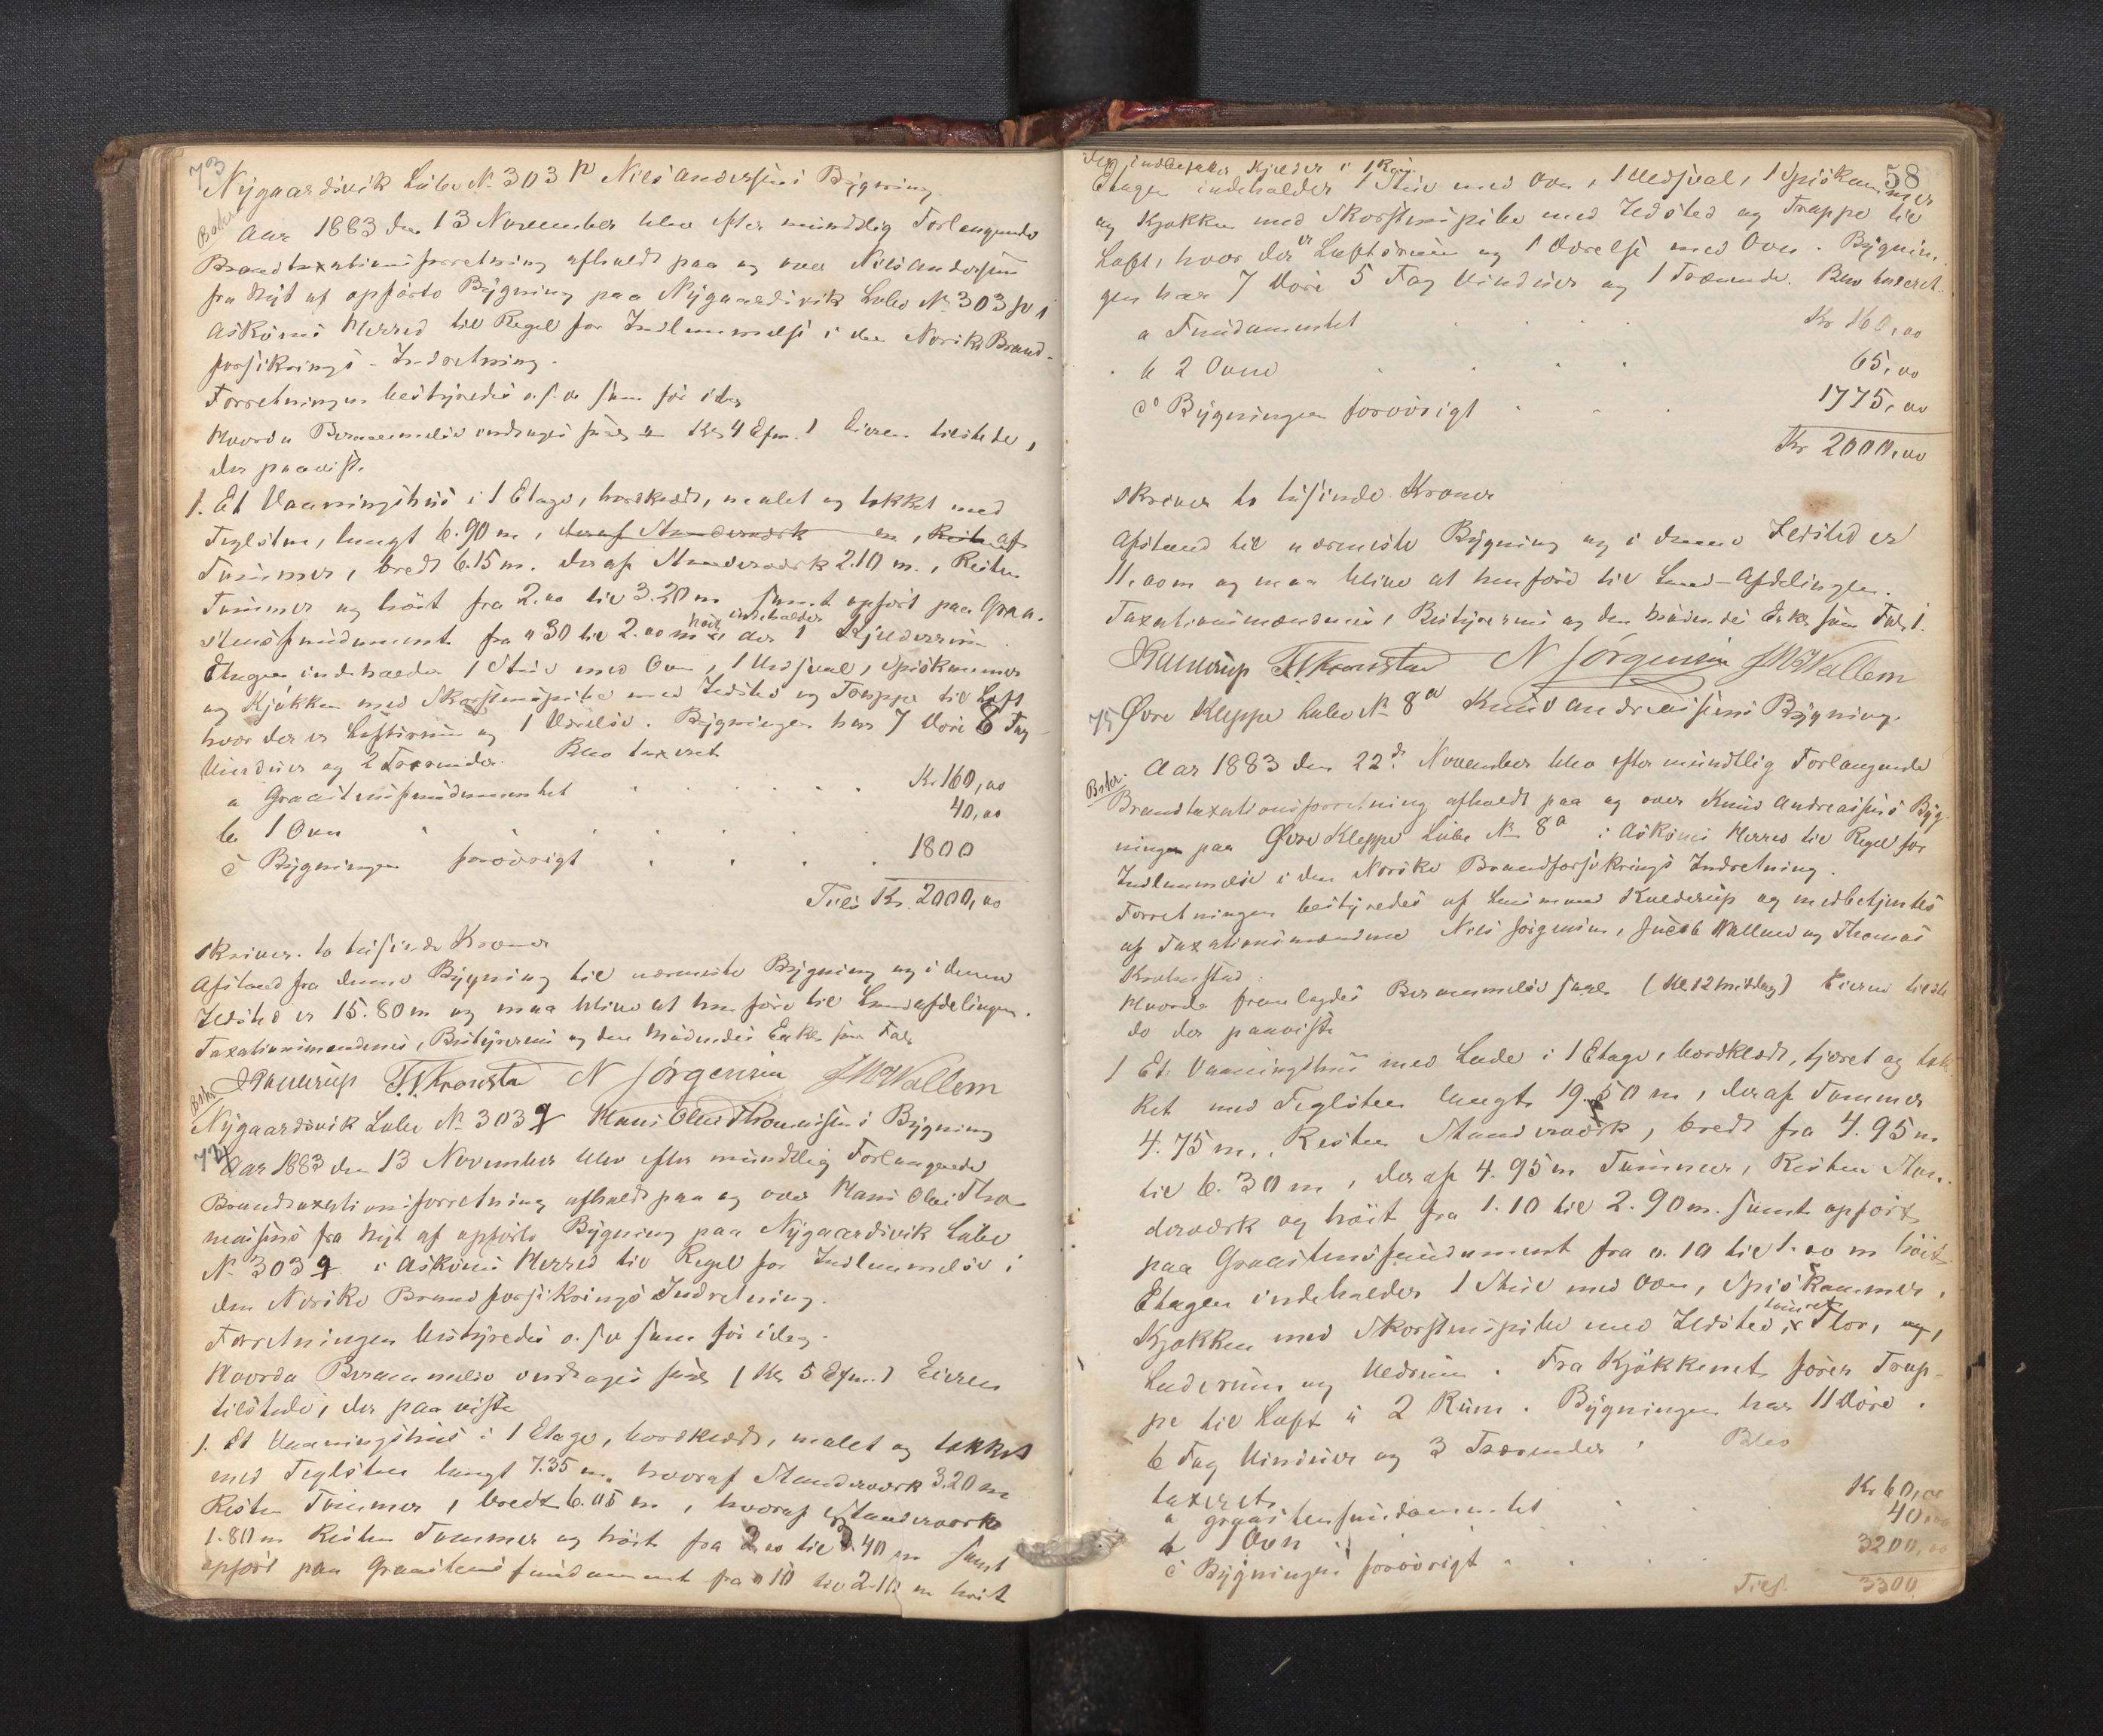 73
Nygaardsvik Løbe No 303 p Nils Andersens Bygning
Bskr.
Aar 1883 den 13 November blev efter mundtlig Forlangende
Brandtaxationsforretning afholdt paa og over Nils Andersens
fra Nyt af opførte Bygning paa Nygaardsvik Løbe No 303 p i
Askøens Herred til Regel for Indlemmelse i den Norske Brand-
forsikrings-Indretning.
Forretningen bestyredes o. s. v. som før idag
Hvorda Berammelse indtages saal. Kl. 4 Efm. Eieren tilstede,
der paaviste
1. Et Vaaningshus i 1 Etage, bordklædt, malet og takket med
Teglsten, langt 6.90 m, deraf Standerværk m, Resten af
Tømmer, bredt 6.15 m. deraf Standerværk 2.10 m., Resten
Tømmer og høit fra 2.00 til 3.20 m samt opført paa Graa-
stensfundament fra 0.30 til 2.00 m høit indeholder der 1 Kjelderrum
Etagen indeholder 1 Stue med Ovn, 1 Udsval, Spiskammer
og Kjøkken med Skorstenspibe med Ildsted og Trappe til Loft
hvor der er Loftsrum og 1 Værelse. Bygningen har 7 Døre 8 Fag
Vinduer og 2 Trærender. Blev taxeret
a Graastensfundamentet Kr. 160,00
b 1 Ovn 40,00
c Bygningen forøvrigt 1800
Tils Kr. 2000,00
skriver to tusinde Kroner
Afstand fra denne Bygning til nærmeste Bygning og i denne
Ildsted er 15.80 m og maa blive at henføre til Landafdelingen.
Taxationsmændenes, Bestyrerens og den bødendes Enker som Før
J Kulderup T. Kronstad N Jørgensen J M Wallem
Bskr.
Nygaardsvik Løbe No 303 q Hans Olai Thomassens Bygning
74
Aar 1883 den 13 November blev efter mundtlig Forlangende
Brandtaxationsforretning afholdt paa og over Hans Olai Tho-
massens fra Nyt af opførte Bygning paa Nygaardsvik Løbe
No 303 q i Askøens Herred til Regel for Indlemmelse i
den Norske Brandforsikrings Indretning.
Forretningen bestyredes o. s. v. som før idag.
Hvorda Berammelse indtages saal. (Kl. 5 Efm.) Eieren
tilstede, der paaviste
1. Et Vaaningshus i 1 Etage, bordklædt, malet og takket
med Teglsten langt 7.35 m. hvoraf Standerværk 3.20 m
Resten Tømmer, bredt 6.05 m, hvoraf Standerværk
1.80 m Resten Tømmer og høit fra 2.00 til 3.40 m samt
opført paa Graastensfundament fra 0.10 til 2.10 m høit
58
der indbefatter Kjelder i 1 Rum
Etagen indeholder 1 Stue med Ovn, 1 Udsval, 1 Spiskammer
og Kjøkken med Skorstenspibe med Ildsted og Trappe til
Loft, hvor der er Loftsrum og 1 Værelse med Ovn. Bygnin-
gen har 7 Døre 5 Fag Vinduer og 1 Trærende. Blev taxeret
a Fundamentet Kr 160,00
b 2 Ovne 65,00
c Bygningen forøvrigt 1775,00
Kr 2000,00
skriver to tusinde Kroner
Afstand til nærmeste Bygning og i denne Ildsted er
11,00 m og maa blive at henføre til Land-Afdelingen.
Taxationsmændenes, Bestyrerens og den bødendes Enker som Før.
J Kulderup T. Kronstad N Jørgensen J M Wallem
75 Øvre Kleppe Løbe No 8a Knud Andreassens Bygning.
Bskr.
Aar 1883 den 22de November blev efter mundtlig Forlangende
Brandtaxationsforretning afholdt paa og over Knud Andreassens Byg-
ningen paa Øvre Kleppe Løbe No 8a i Askøens Herred til Regel for
Indlemmelse i den Norske Brandforsikrings Indretning.
Forretningen bestyredes af Lensmand Kulderup og medbetjentes
af Taxationsmændene Nils Jørgensen, Jacob Wallem og Thomas
Kronstad.
Hvorda fremlagdes Berammelse saal. (Kl. 12 Middag) Eieren tilste-
de der paaviste
1 Et Vaaningshus med Lade i 1 Etage, bordklædt, tjæret og tak-
ket med Teglsten langt 19.50 m, deraf Tømmer
4.75 m., Resten Standerværk, bredt fra 4.95 m
til 6.30 m, deraf 4.95 m Tømmer, Resten Stan-
derværk og høit fra 1.10 til 2.90 m. samt opført
paa Graastensfundament fra 0.10 til 1.00 m høit
Etagen indeholder 1 Stue med Ovn, Spiskammer,
Kjøkken med Skorstenspibe med Ildsted, Flor, og,
Laderum og Vedrum. Fra Kjøkkenet fører Trap-
pe til Loft i 2 Rum. Bygningen har 11 Døre,
6 Fag Vinduer og 3 Trærender. Blev
taxeret
a graastensfundamentet Kr 60,00
b 1 Ovn 40,00
c Bygningen forøvrigt 3200,00
Tils 3300